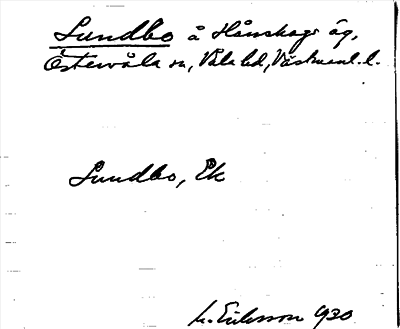 Lundbo å Hånskogs äg,
Östervåla sn, Våla hd, Västmanl. l.
Lundbo, Ek
M. Eriksson 1930